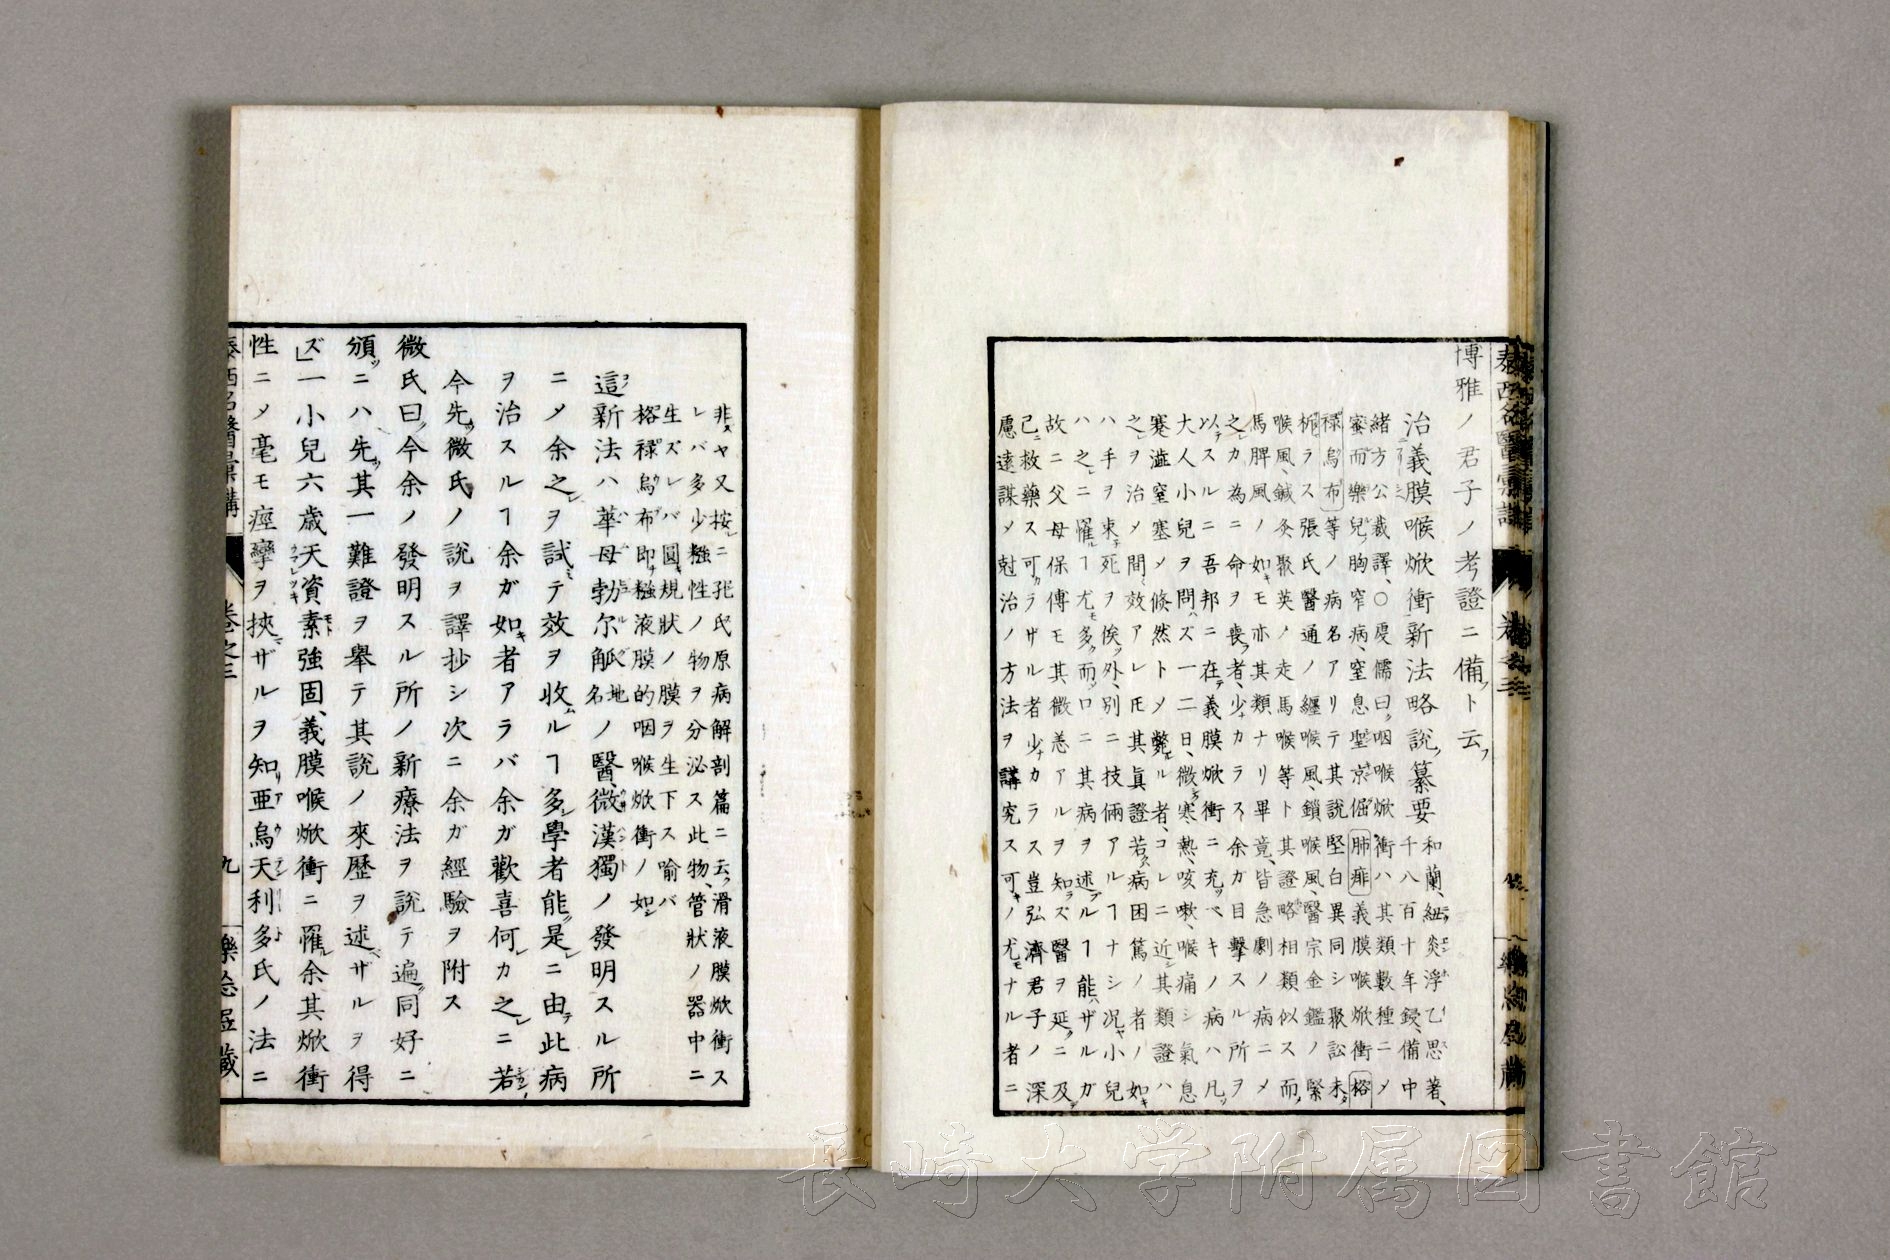 博雅ノ君子ノ考證ニ備フト云フ
治義膜喉焮衝新法略說纂要
和蘭、紐炎浮乙思著、
千八百十年鋟、備中
緒方公裁譯、○虔儒曰、咽喉焮衝ハ其類數種ニメ
蜜而樂兒、胸窄病、窒息堲京倔肺痱義膜喉焮衝榕
祿烏布等ノ病名アリテ其說堅白異同シ聚訟未タ
栀ラス張氏醫通ノ纏喉風、鎖喉風、醫宗金鑑ノ緊
喉風、鍼灸聚英ノ走馬喉等ト其證略相類似ス而ノ
馬脾風ノ如キモ亦其類ナリ畢竟、皆急劇ノ病ニメ
之レカ為ニ命ヲ喪フ者、少ナカラス、余ガ目擊スル所ヲ
以テスルニ吾邦ニ在テ義膜焮衝ニ充ツベキノ病ハ凡ソ
大人小兒ヲ問ハズ一二日、微シク寒熱、咳嗽、喉痛シ氣息
蹇澁窒塞メ倏然トメ斃ルル者、コレニ近シ其類證ハ
之レヲ治メ間〻效アレ𪜈其眞證ノ若クハ病困篤ノ者ノ如キ
ハ手ヲ束テ死ヲ俟ツ外、別ニ技倆アルヿナシ況ヤ小兒
ハ之レニ罹ルヿ尤モ多ク而ノ口其病ヲ述ブルヿ能ハザルガ
故ニ父母保傅モ其微恙アルヲ知ラズ醫ヲ延クニ及デ
已ニ救藥ス可カラザル者少ナカラス豈弘濟君子ノ深
慮遠謀メ尅治ノ方法ヲ講究ス可キノ尤モナル者ニ
非スヤ又按ニ扺氏原病解剖篇ニ云フ滑液膜焮衝ス
レバ多少糨性ノ物ヲ分泌ス此物、管狀ノ器中ニ
生ズレバ圓規狀ノ膜ヲ生下ス喻バ
榕祿烏布即チ糨液膜的咽喉焮衝ノ如シ
這新法ハ華母勃尔觝地名ノ醫微漢獨ノ發明スル所
ニメ余之レヲ試ミテ效ヲ收ムルヿ多シ學者能ク是レニ由テ此病
ヲ治スルヿ余ガ如キ者アラバ余ガ歡喜何カ之レニ若ン
今先ツ微氏ノ說ヲ譯抄シ次ニ余ガ經驗ヲ附ス
微氏曰ク今余ノ發明スル所ノ新療法ヲ說テ遍ク同好ニ
頒ツニハ先ツ其一難證ヲ舉テ其說ノ來歷ヲ述ベザルヲ得
ズ」一小兒六歲天資素ト強固、義膜喉焮衝ニ罹ル余其焮衝
性ニメ毫モ痙攣ヲ挾マザルヲ知リ亜烏天利多氏ノ法ニ
泰西名醫彙講
卷之三
九
樂忩居藏
長崎大学附属図書館